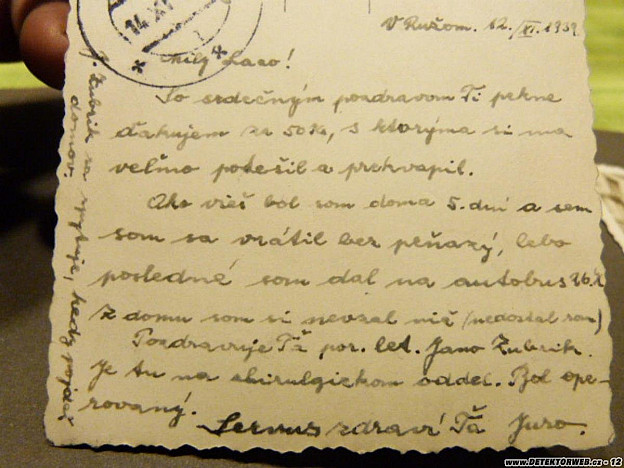 14. XI
V Ružom. 12./XI. 1939.
Milý Laco!
So srdečným pozdravom Ti pekne
ďakujem za 50 k, s ktorýma si ma
veľmo potešil a prekvapil.
Ako vieš bol som doma 5. dní a sem
som sa vrátil bez peňazý, lebo
posledné som dal na autobus 26 k
Z domu som si nevzal nič (nedostal som)
Pozdravuje Ťa por. let. Jano Zubrik.
Je tu na chirulgickom oddel. Bol ope-
rovaný.
Servus zdraví Ťa Juro.
J. Zubrik sa spytuje, kedy pojdeš
domov.
www.DETEKTORWEB.cz - 12